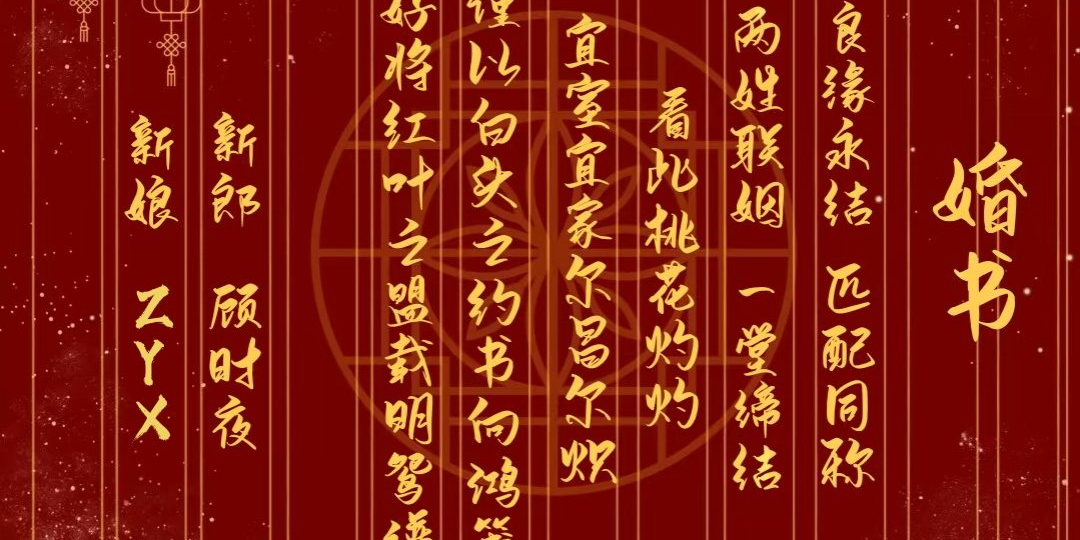 婚书
良缘永结 匹配同称
两姓联姻 一堂缔结
看此桃花灼灼
宜室宜家尔昌尔炽
谨以白头之约书向鸿笺
好将红叶之盟载明鸳谱
新郎 顾时夜
新娘 ZYX